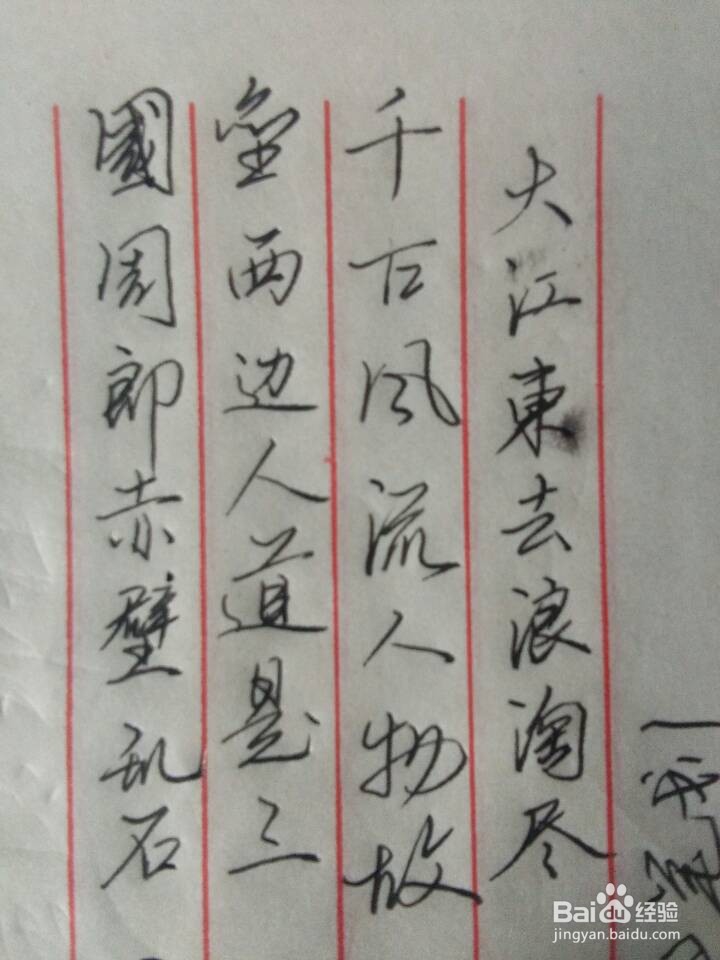 大江東去浪淘尽
千古風流人物故
壘两边人道是三
國周郎赤壁乱石
Baidu经验
jingyan.baidu.com